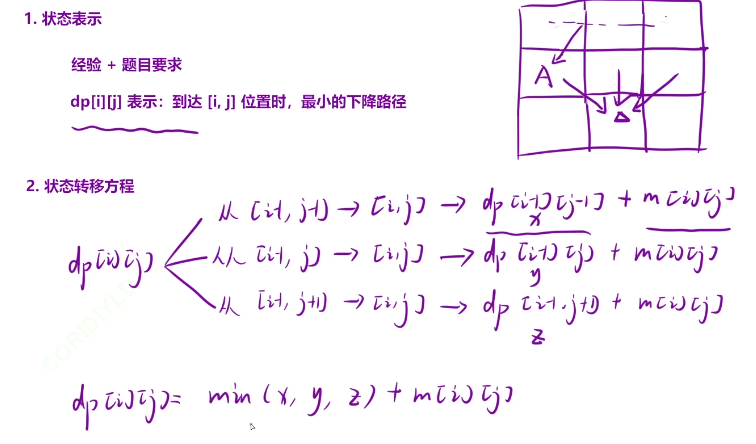 1. 状态表示
经验 + 题目要求
dp[i][j] 表示：到达 [i, j] 位置时，最小的下降路径
A
2. 状态转移方程
从 [i-1, j-1] → [i, j] → dp[i-1][j-1] + m[i][j]
x
dp[i][j]
从 [i-1, j] → [i, j] → dp[i-1][j] + m[i][j]
y
从 [i-1, j+1] → [i, j] → dp[i-1, j+1] + m[i][j]
z
dp[i][j] = min(x, y, z) + m[i][j]